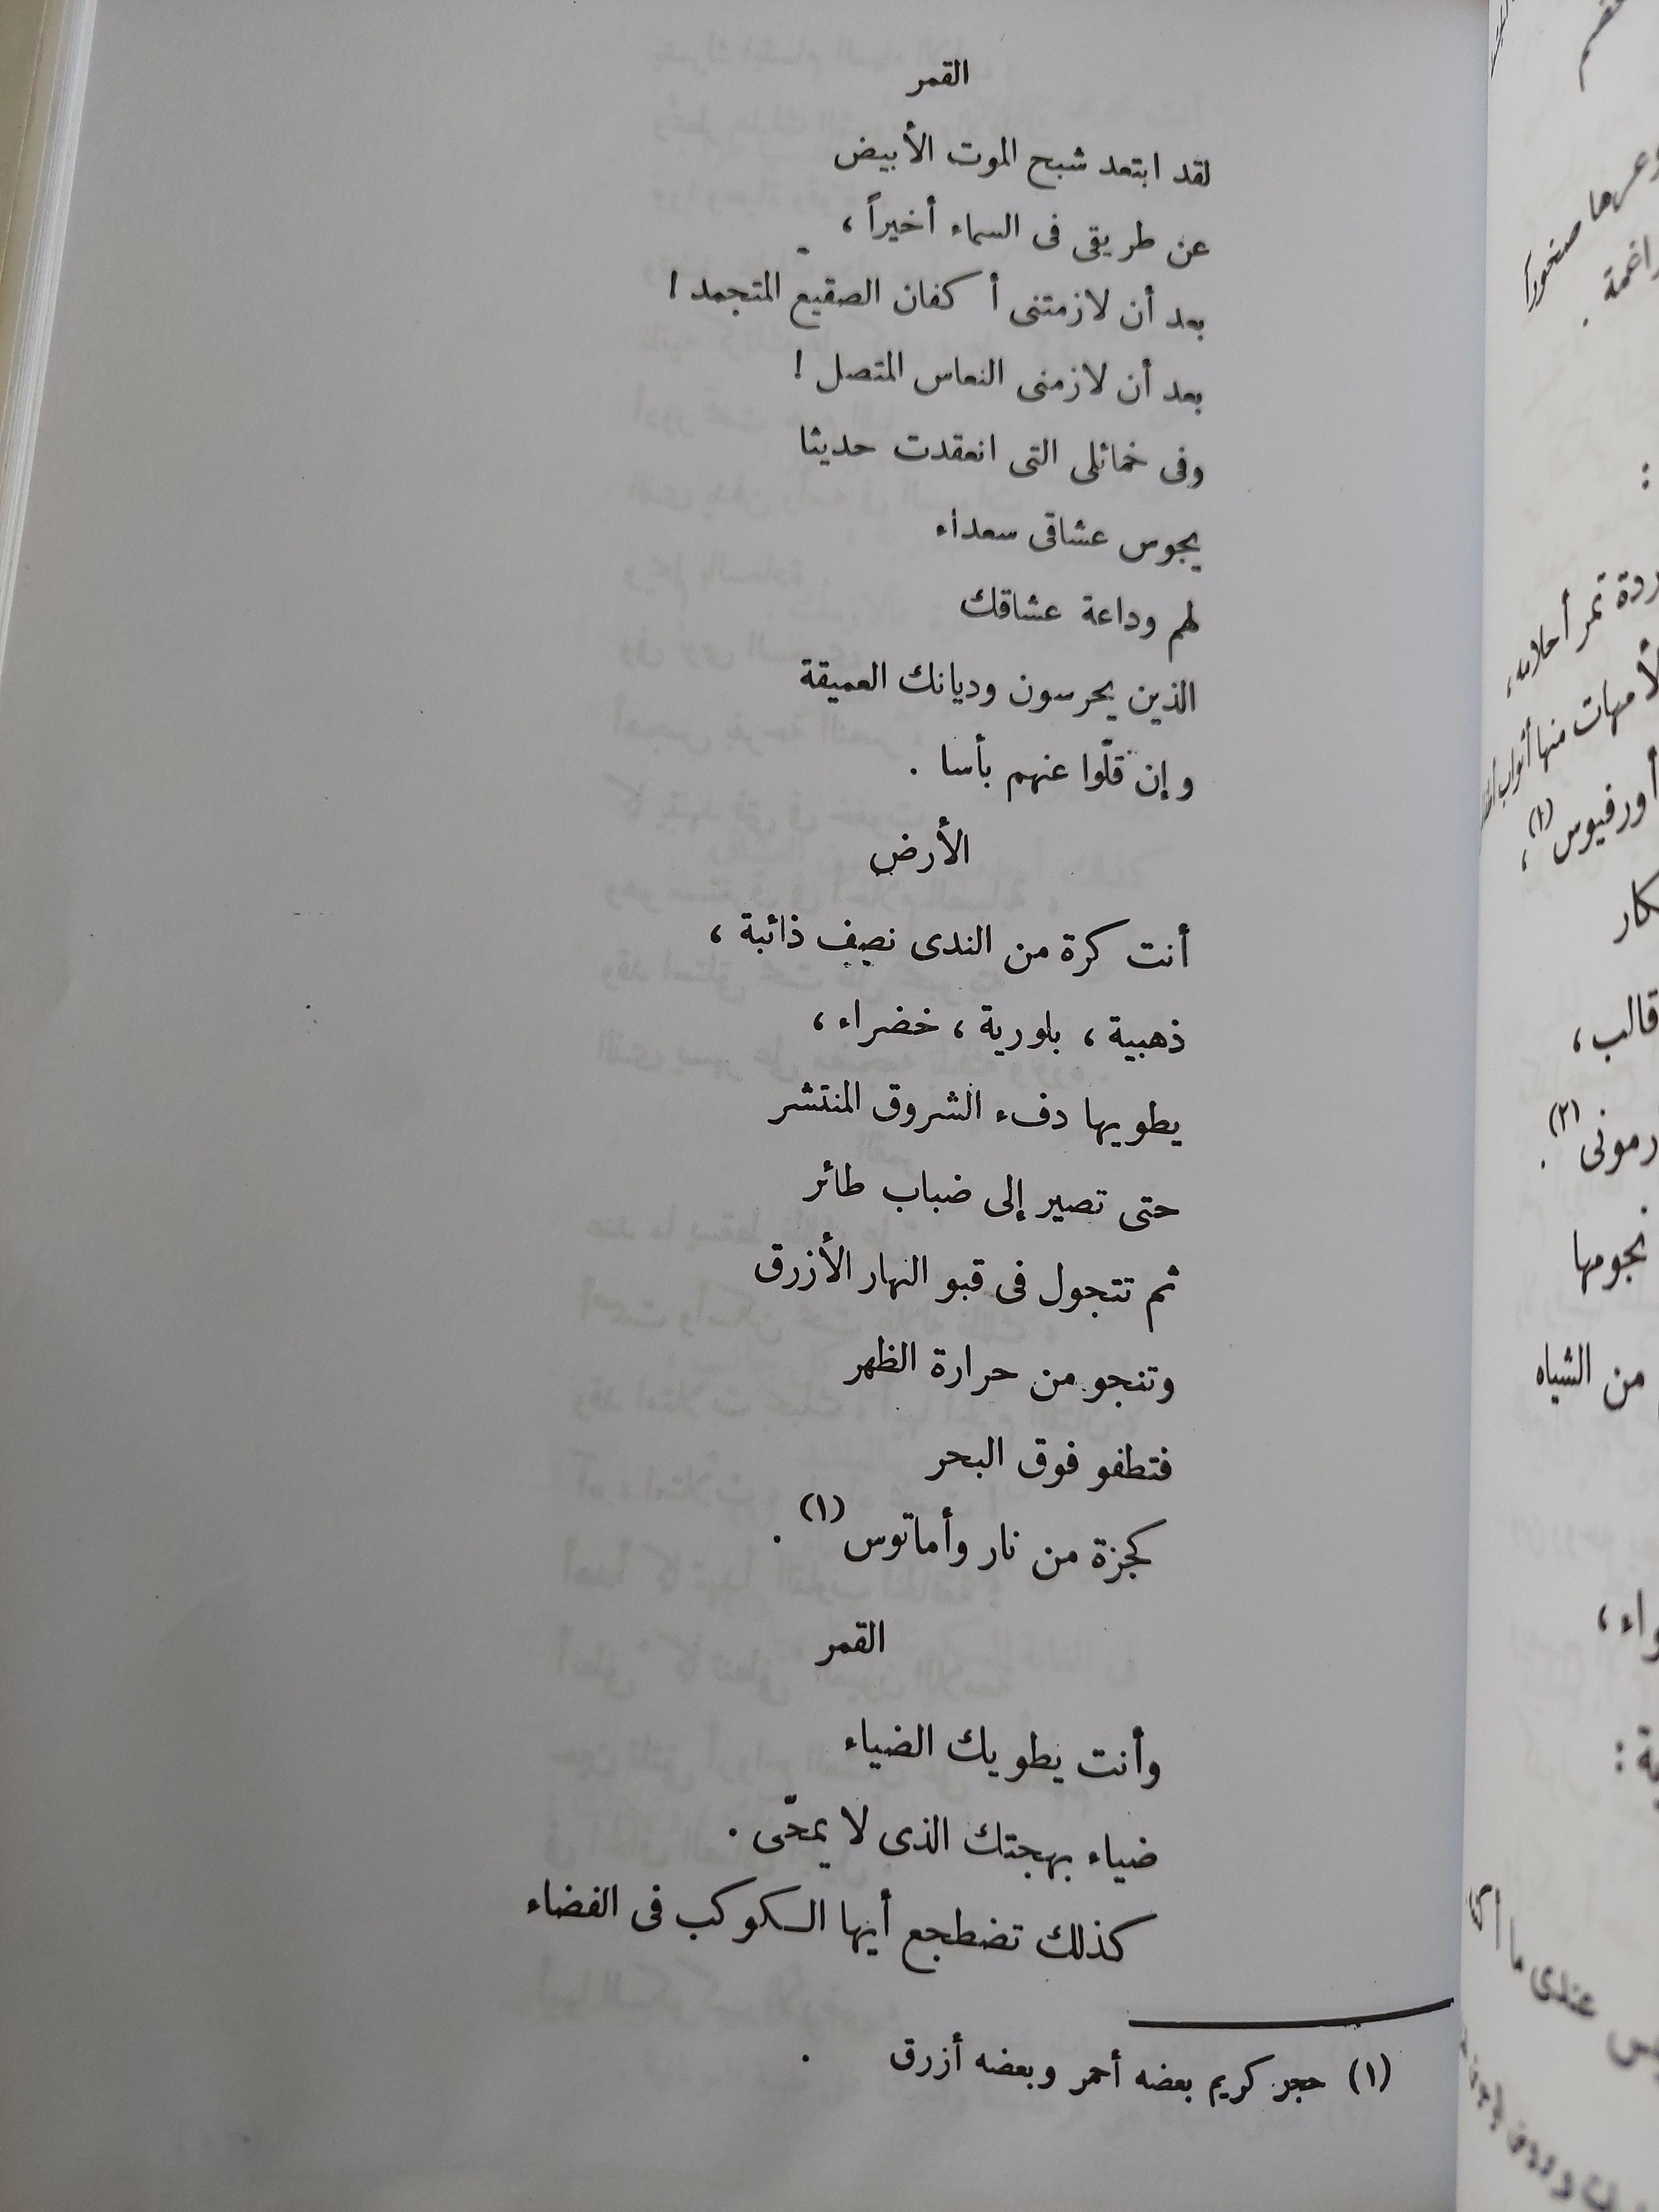 القمر
لقد ابتعد شبح الموت الأبيض
عن طريقى فى السماء أخيراً ،
بعد أن لازمتنى أكفان الصقيع المتجمد !
بعد أن لازمنى النعاس المتصل !
وفى خمائلى التى انعقدت حديثا
يجوس عشاقى سعداء
لهم وداعة عشاقك
الذين يحرسون وديانك العميقة
وإن قلّوا عنهم بأسا .
الأرض
أنت كرة من الندى نصيف ذائبة ،
ذهبية ، بلورية ، خضراء ،
يطويها دفء الشروق المنتشر
حتى تصير إلى ضباب طائر
ثم تتجول فى قبو النهار الأزرق
وتنجو من حرارة الظهر
فتطفو فوق البحر
كجزة من نار وأماتوس (١) .
القمر
وأنت يطويك الضياء
ضياء بهجتك الذى لا يمحّى .
كذلك تضطجع أيها الكوكب فى الفضاء
(١) حجر كريم بعضه أحمر وبعضه أزرق .
وعرها صخوراً
راغمة .
:
ردة تمر أحلامه ،
الأمهات منها أثواب
أورفيوس (١) ،
قالب ،
رمونى (٢) .
نجومها
من الشياه
عندى ما